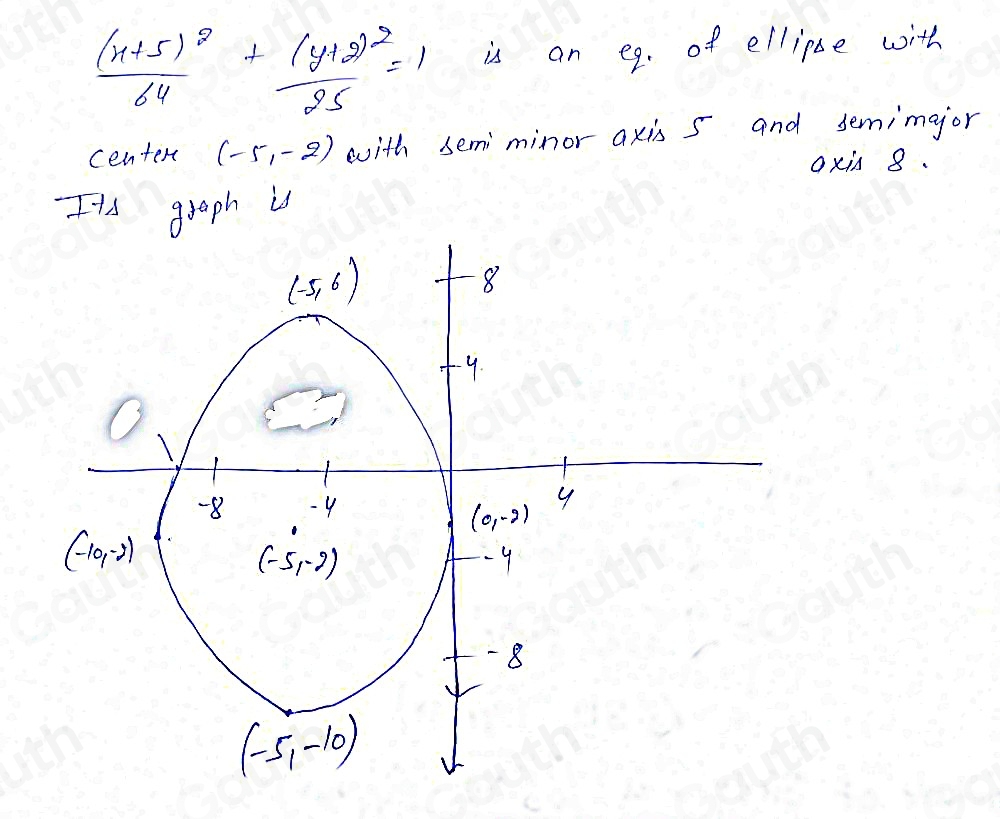 (x+5)² / 64 + (y+2)² / 25 = 1 is an eq. of ellipse with
center (-5,-2) with semi minor axis 5 and semimajor
axis 8.
Its graph is
(-5,6)
8
4
-8
-4
4
(-10,-2)
(-5,-2)
(0,-2)
-4
-8
(-5,-10)